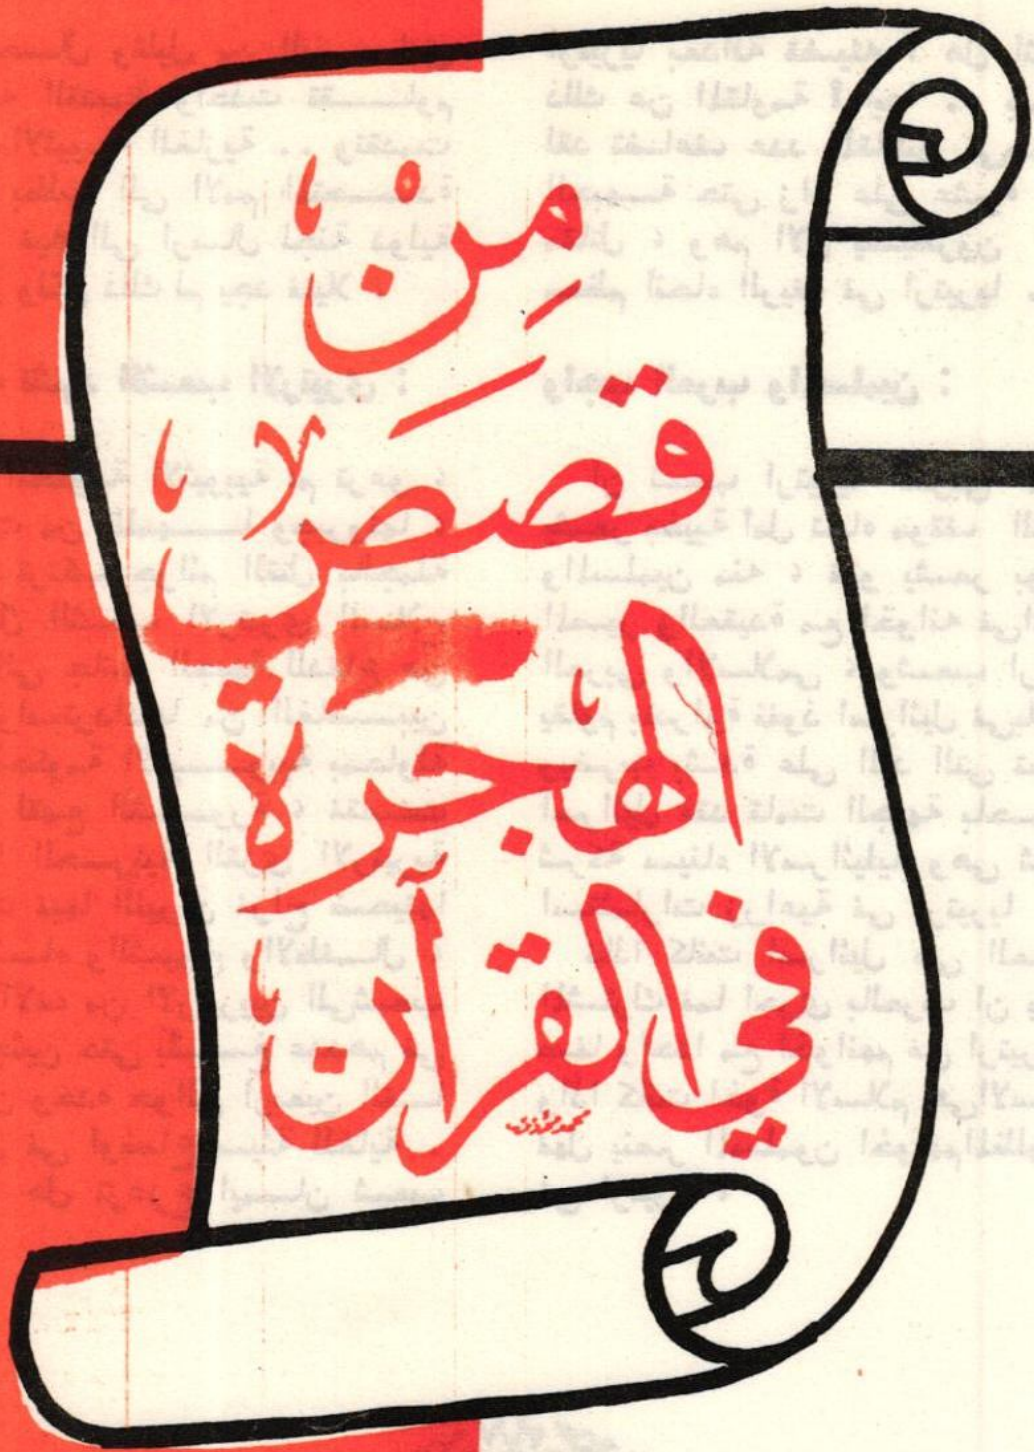 مِنْ
قصَصِ
الهجرة
في القرآن